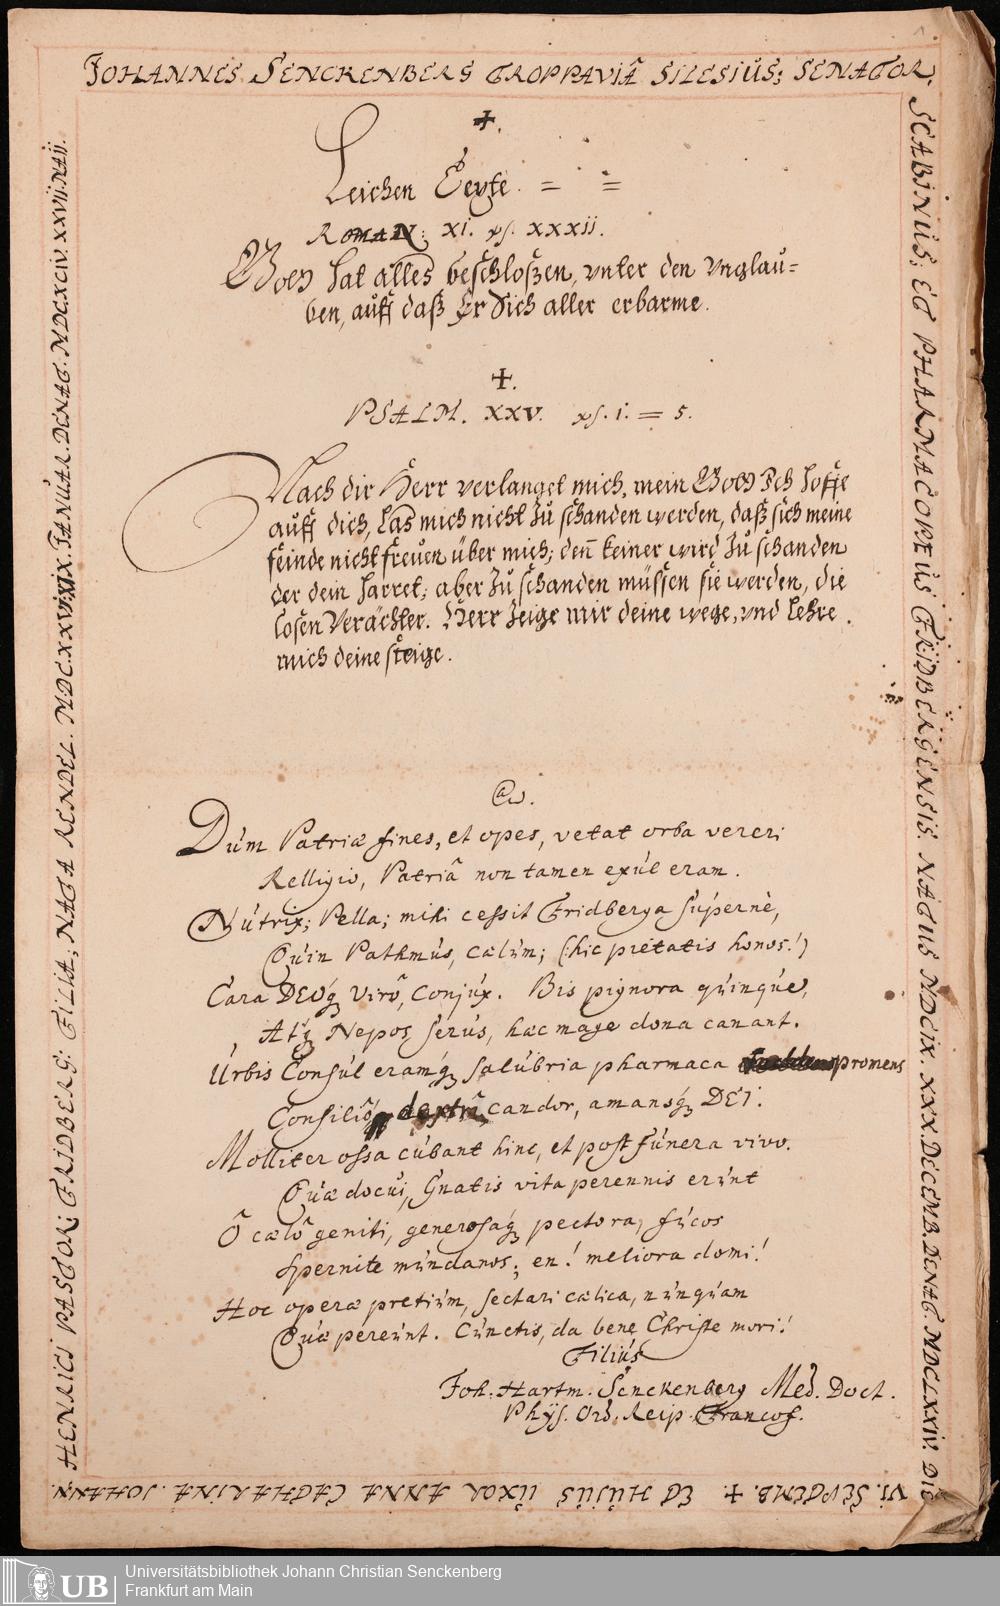 JOHANNES SENCKENBERG TROPPAVIÂ SILESIUS; SENATOR.
SCABINUS; ET PHARMACOPŒUS FRIDBERGENSIS. NATUS MDCIX. XXX. DECEMB. DENAT. MDCLXXIV. DIE
VI. SEPTEMB. +. ET HUJUS UXOR ANNA CATHARINA. JOHANN.
HENRICI PASTOR; FRIDBERG: FILIA, NATA RENDEL. MDCXXVI. XIX. JANUAR. DENAT. MDCXCIV. XXVII. MAII.
+.
Leichen Texte. = =
ROMAN; XI. vs. XXXII.
Gott hat alles beschloßen, unter den Unglau=
ben, auff daß Er Sich aller erbarme.
+.
PSALM. XXV. vs. 1. = 5.
Nach dir Herr verlanget mich, mein Gott Ich hoffe
auff dich, Las mich nicht zu schanden werden, daß sich meine
feinde nicht freuen über mich; deñ keiner wird zu schanden
der dein harret; aber zu schanden müssen sie werden, die
losen Verächter. Herr zeige mir deine wege, und lehre
mich deine steige.
Dum Patriæ fines, et opes, vetat orba vereri
Relligio, Patriâ non tamen exul eram.
Nutrix; Pella; mihi cessit Fridberga supernè,
Quin Pathmus, cælum; (: hic pietatis honos!)
Cara DEOq3 Virô, Conjux. Bis pignora quinque,
Atq3 Nepos serus, hæc mage dona canant.
Urbis Consul eramq3 salubria pharmaca promens
Consiliô, dextrâ, candor, amansq3 DEI.
Molliter ossa cubant hinc, et post funera vivo.
Quæ docui, Gnatis vita perennis erunt
Ô cælô geniti, generosaq3 pectora, fucos
Spernite mundanos; en! meliora domi!
Hoc operæ pretium, sectari cælica, nunquam
Quæ pereunt. Cunctis, da bene Christe mori!
Filius
Joh. Hartm. Senckenberg Med. Doct.
Phys. Ord. Reip. Francof.
UB
Universitätsbibliothek Johann Christian Senckenberg
Frankfurt am Main